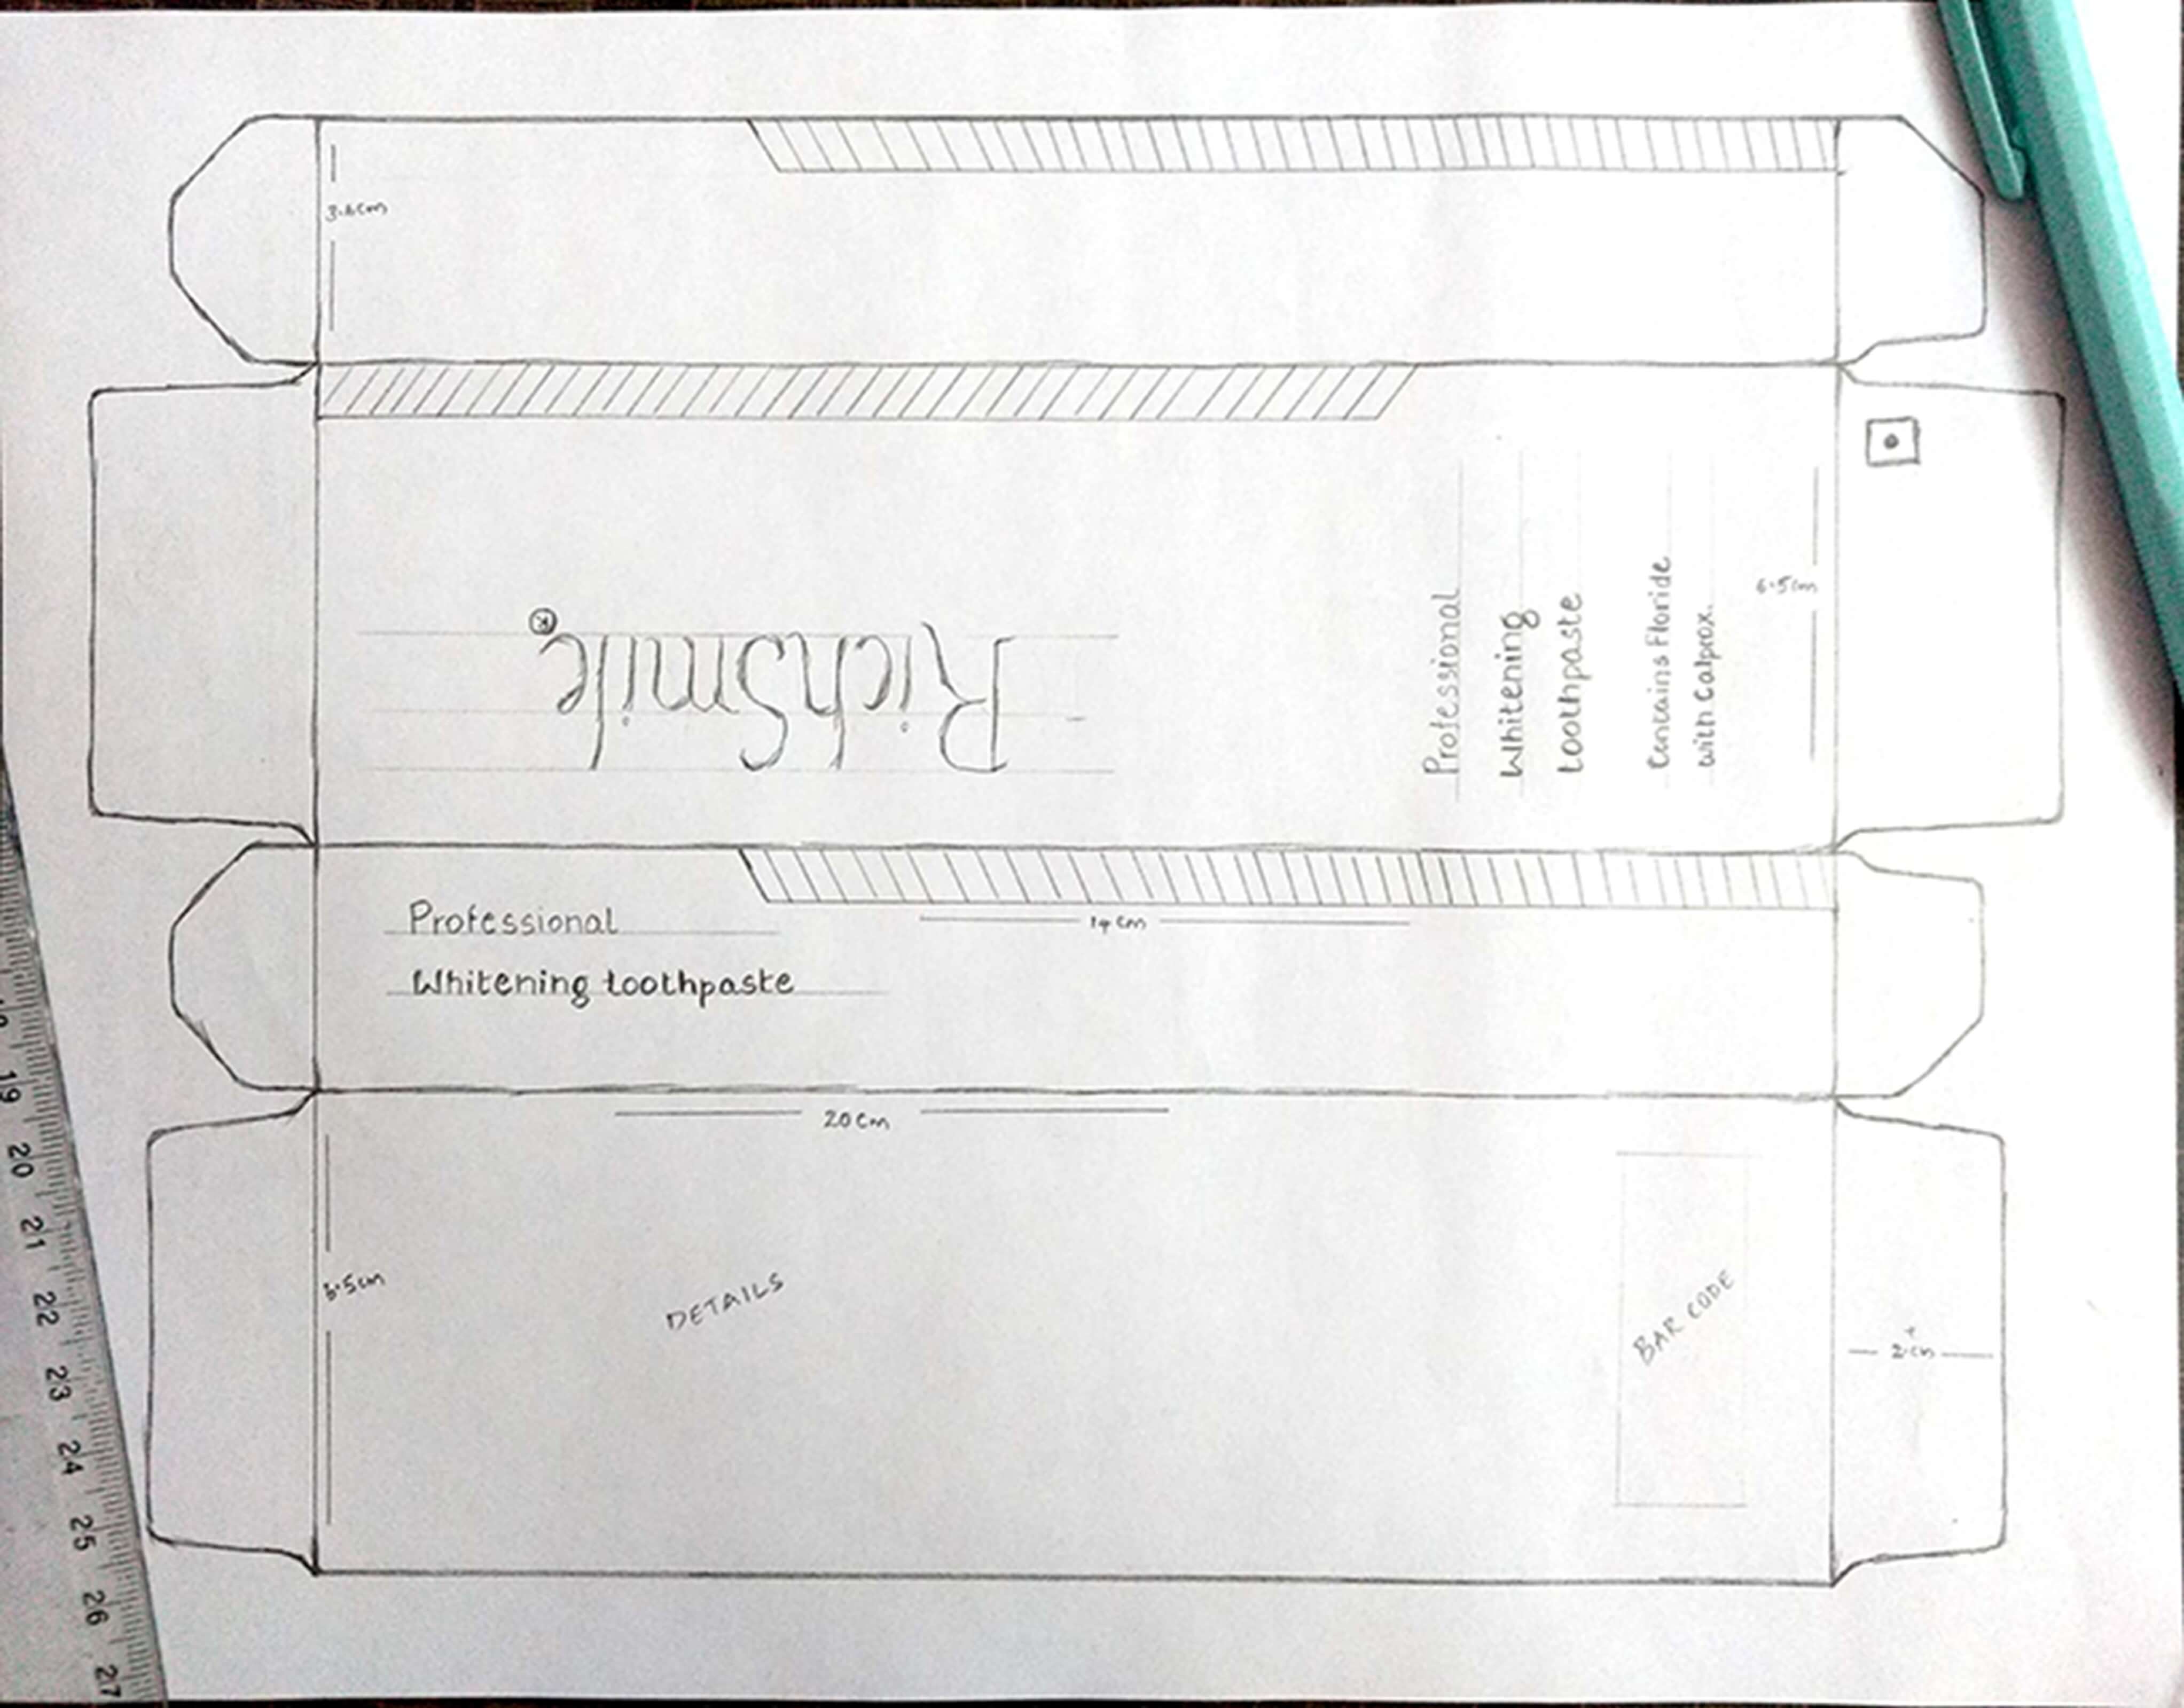 3.6cm
RichSmile®
Professional
Whitening
toothpaste
Contains Floride
with Calprox.
6.5cm
Professional
Whitening toothpaste
14cm
20cm
6.5cm
DETAILS
BAR CODE
2cm
19
20
21
22
23
24
25
26
27